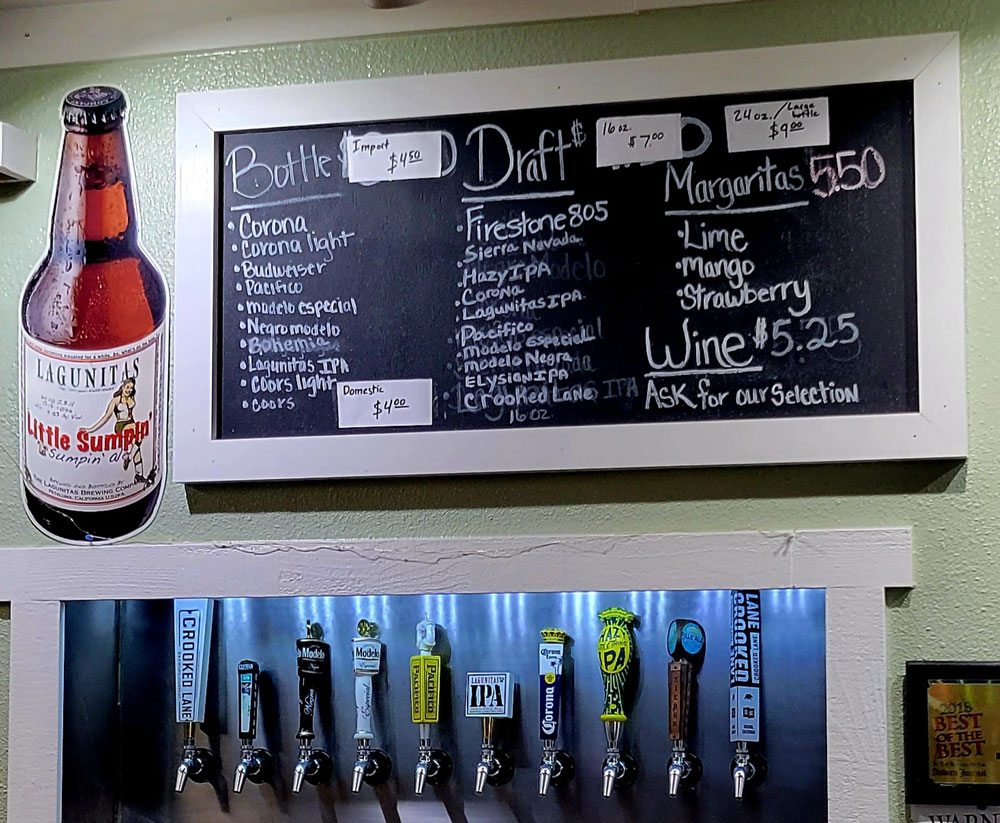 Bottle
Import
$4.50
• Corona
• Corona light
• Budweiser
• Pacifico
• modelo especial
• Negro modelo
• Bohemia
• Lagunitas IPA
• Coors light
• coors
Domestic
$4.00
Draft $
16 oz.
$7.00
24 oz./Large
$9.00
• Firestone 805
• Sierra Nevada
• Hazy IPA
• Corona
• Lagunitas IPA
• Pacifico
• Modelo Especial
• modelo Negra
• ELYSian IPA
• Crooked Lane
16 oz.
Margaritas 5.50
• Lime
• Mango
• Strawberry
Wine $5.25
ASK for our Selection
LAGUNITAS
Little Sumpin'
Sumpin' ale
THE LAGUNITAS BREWING COMPANY
PETALUMA, CALIFORNIA U.S.OFA.
CROOKED LANE
Modelo
Modelo
Especial
Pacifico
LAGUNITAS
IPA
Corona
Corona
PA
SIERRA
LANE
CROOKED
2018
BEST
OF THE
BEST
Auburn Journal